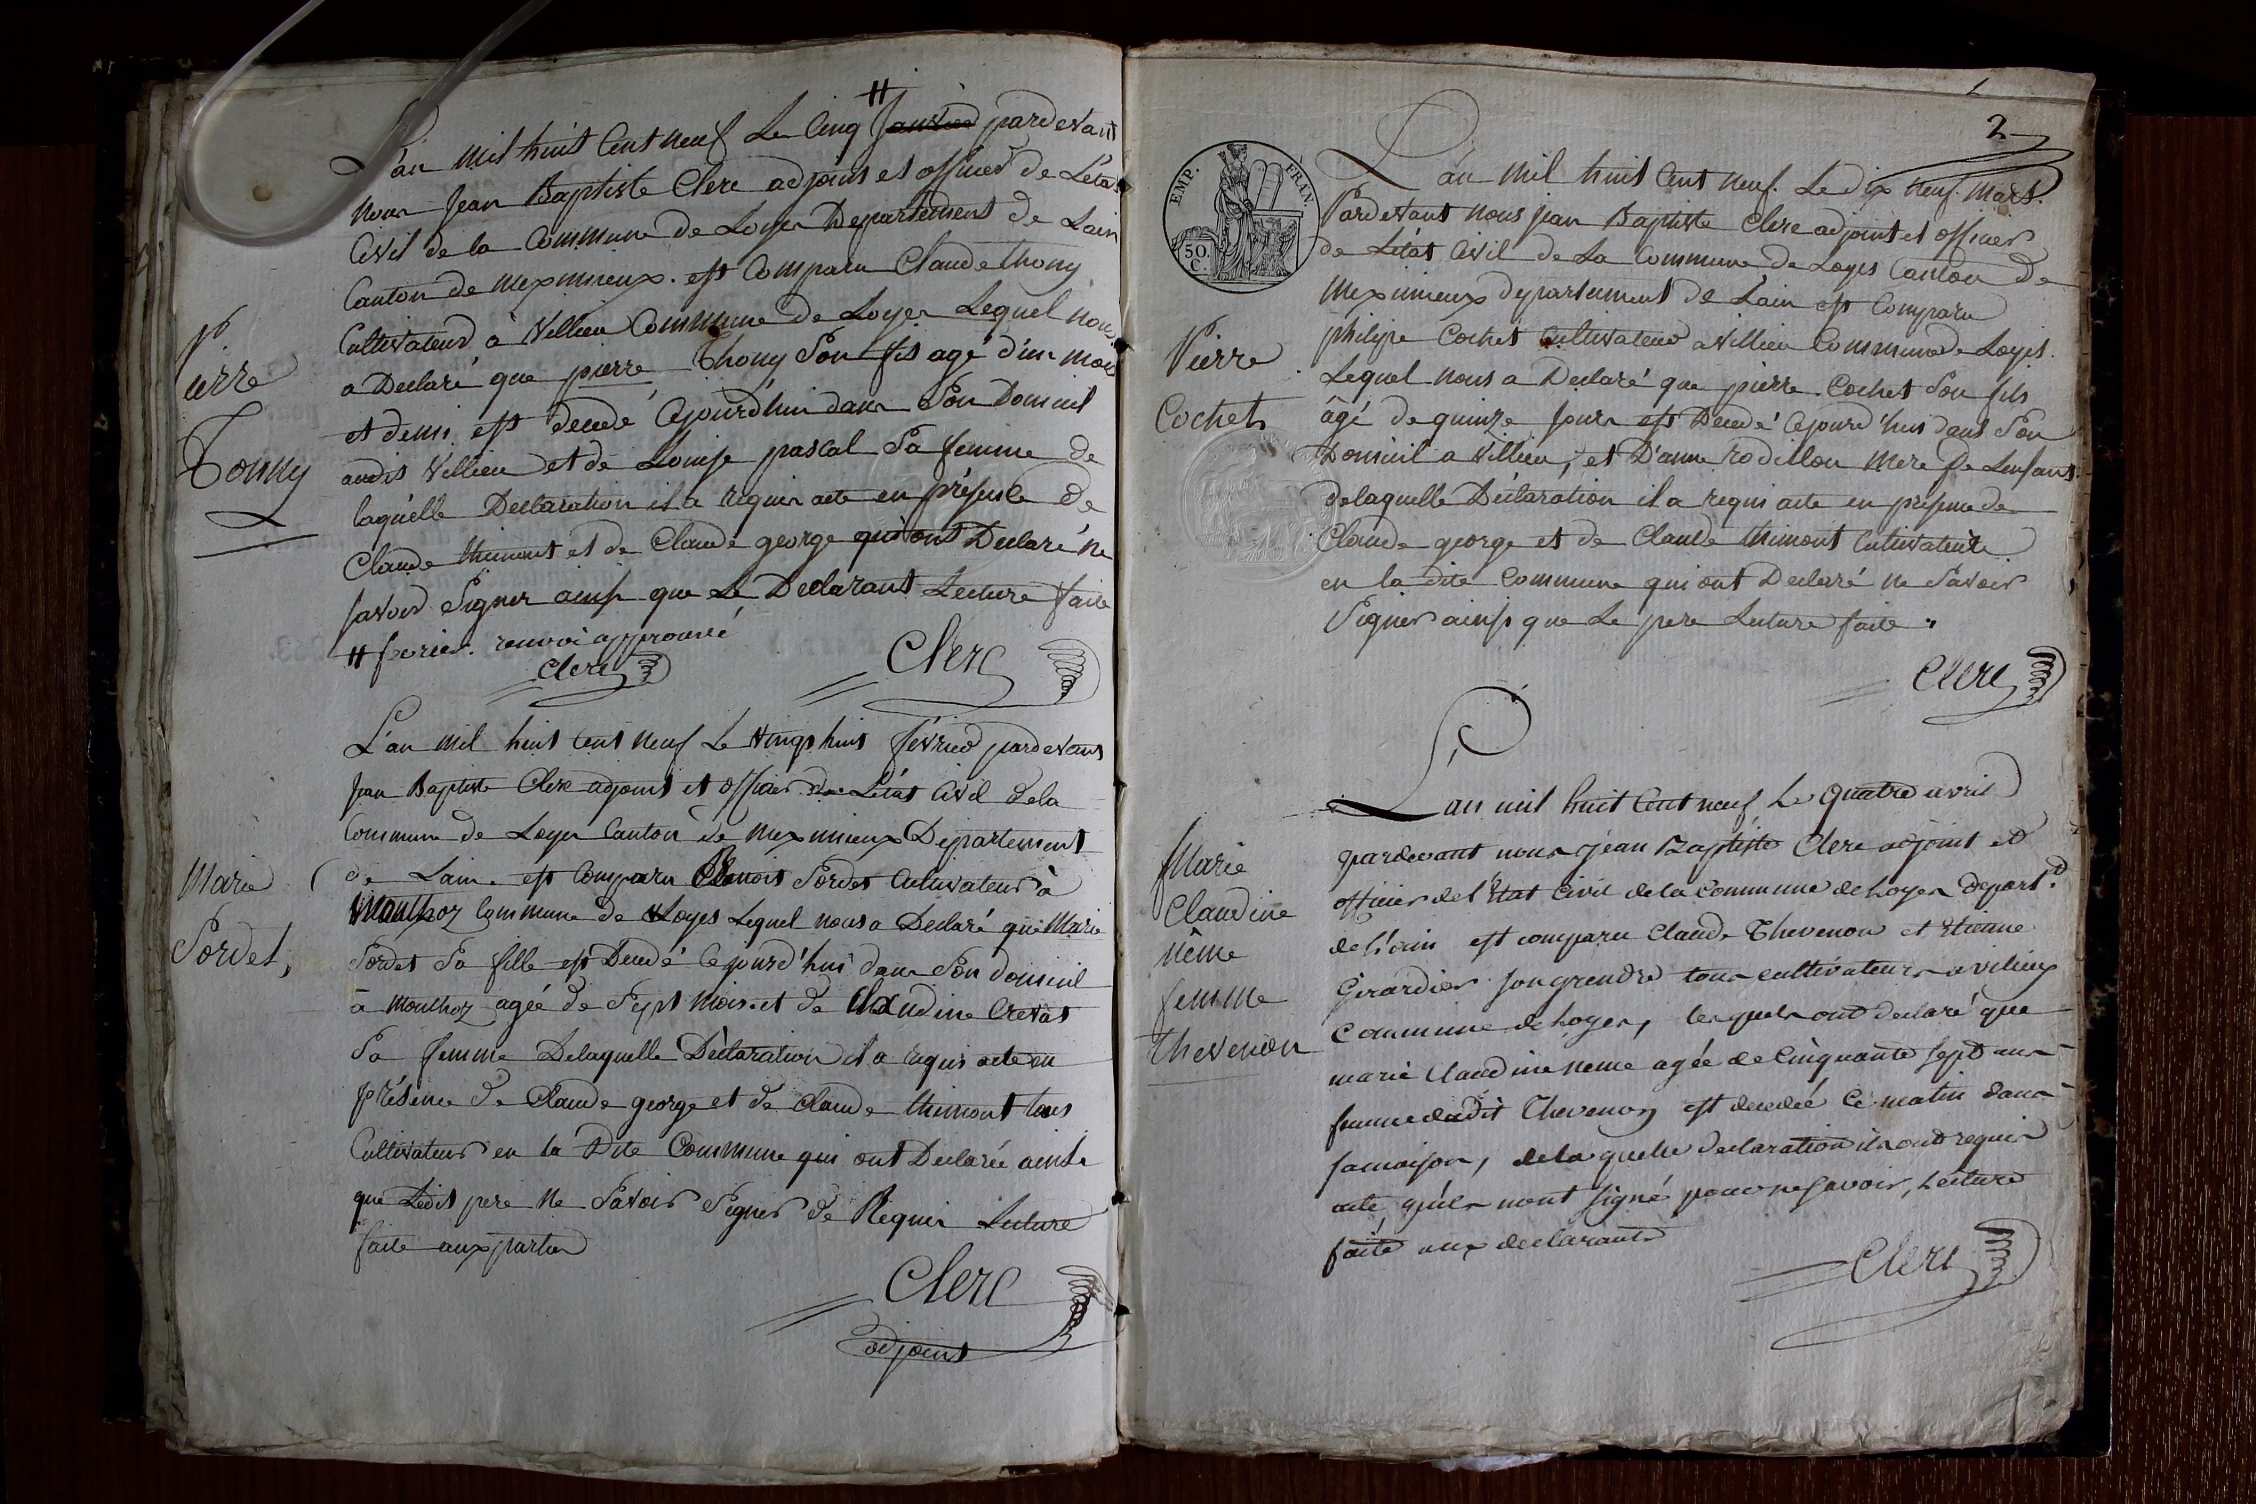 L'an mil huit Cent neuf Le Cinq # Janvier pardevant
nous Jean Baptiste Clerc adjoint et officier de L'état
Civil de la Commune de Loyes Departement de Lain
Canton de meximieux. est Comparu Claude thony
Cultivateur à Villieu Commune de Loyes Lequel nous
a Declaré que pierre Thony Son fils agé d'un mois
et demi est decedé Cejourd'hui dans Son Domicil
audit Villieu et de Louise pascal Sa femme de
laquelle Declaration il a requis acte en présence de
Claude thimont et de Claude george qui ont Declaré ne
savoir Signer ainsi que Le Declarant Lecture faite
# fevrier. renvoi approuvé
Clerc Clerc
Pierre
Tonny
L'an mil huit Cent neuf Le vingt huit février pardevant
Jean Baptiste Clerc adjoint et officier de L'état Civil dela
Commune de Loyes Canton de meximieux Departement
de Lain. est Comparu Benoit Sordet Cultivateur à
Monthoz Commune de Loyes Lequel nous a Declaré que Marie
Sordet Sa fille est Decedé Cejourd'hui dans Son domicil
à Monthoz agée de Sept mois. et de Claudine Crevat
Sa femme Delaquelle Déclaration il a requis acte en
présence de Claude george et de Claude thimont tous
Cultivateur en la Dite Commune qui ont Declarée ainsi
que Ledit pere ne Savoir Signer de Requis Lecture
faite aux parties
Clerc
adjoint
Marie
Sordet,
2
EMP. FRAN.
50.
C.
L'an mil huit Cent neuf. Le dix neuf Mars.
Pardevant nous Jean Baptiste Clerc adjoint et officier
de L'état Civil de La Commune de Loyes Canton de
Meximieux departement de Lain est Comparu
philipe Cochet Cultivateur a Villieu Commune de Loyes.
Lequel nous a Declaré que pierre Cochet Son fils
âgé de quinze Jours est Decedé Cejourd'hui dans Son
Domicil a Villieu, et D'anne rodillon Mere de Lenfant
delaquelle Déclaration il a requi acte en présence de
Claude george et de Claude thimont Cultivateur
en la dite Commune qui ont Declaré ne Savoir
Signer ainsi que Le pere Lecture faite.
Clerc
Pierre
Cochet
L'an mil huit Cent neuf Le quatre avril
pardevant nous jean Baptiste Clerc adjoint et
officier de l'Etat Civil de la Commune de Loyes depart.t
de L'ain est comparu Claude Thevenon et Etienne
Girardier son gendre tous cultivateurs a villieux
Commune de Loyes, lesquels ont declaré que
marie Claudine neme agée de Cinquante sept ans
femme dudit Thevenon est decedée Ce matin dans
sa maison, de laquelle declaration ils ont requis
acte qu'ils n'ont signé pour ne savoir, Lecture
faite aux declarants
Clerc
Marie
Claudine
nême
femme
thevenon